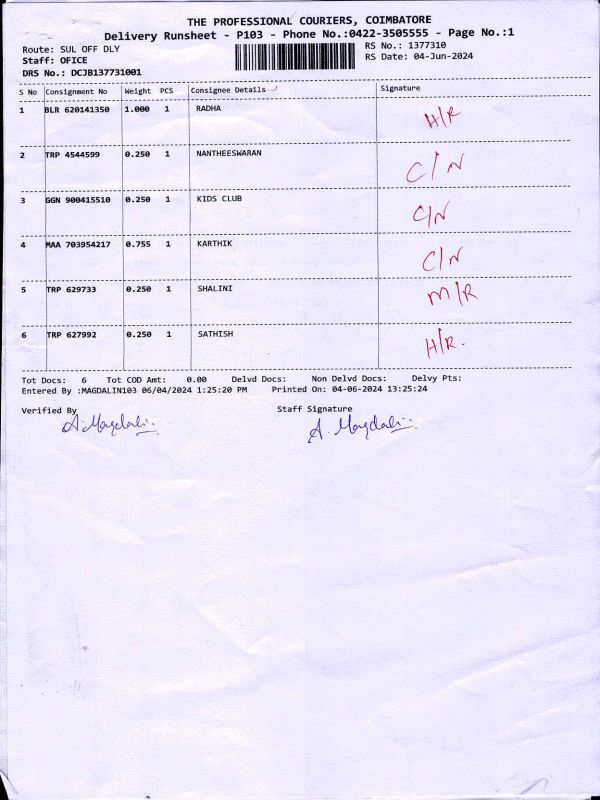 THE PROFESSIONAL COURIERS, COIMBATORE
Delivery Runsheet - P103 - Phone No.:0422-3505555 - Page No.:1
Route: SUL OFF DLY RS No.: 1377310
Staff: OFICE RS Date: 04-Jun-2024
DRS No.: DCJB137731001
S No Consignment No Weight PCS Consignee Details Signature
1 BLR 620141350 1.000 1 RADHA H/R
2 TRP 4544599 0.250 1 NANTHEESWARAN C/N
3 GGN 900415510 0.250 1 KIDS CLUB C/N
4 MAA 703954217 0.755 1 KARTHIK C/N
5 TRP 629733 0.250 1 SHALINI M/R
6 TRP 627992 0.250 1 SATHISH H/R.
Tot Docs: 6 Tot COD Amt: 0.00 Delvd Docs: Non Delvd Docs: Delvy Pts:
Entered By :MAGDALIN103 06/04/2024 1:25:20 PM Printed On: 04-06-2024 13:25:24
Verified By Staff Signature
A. Magdali A. Magdali